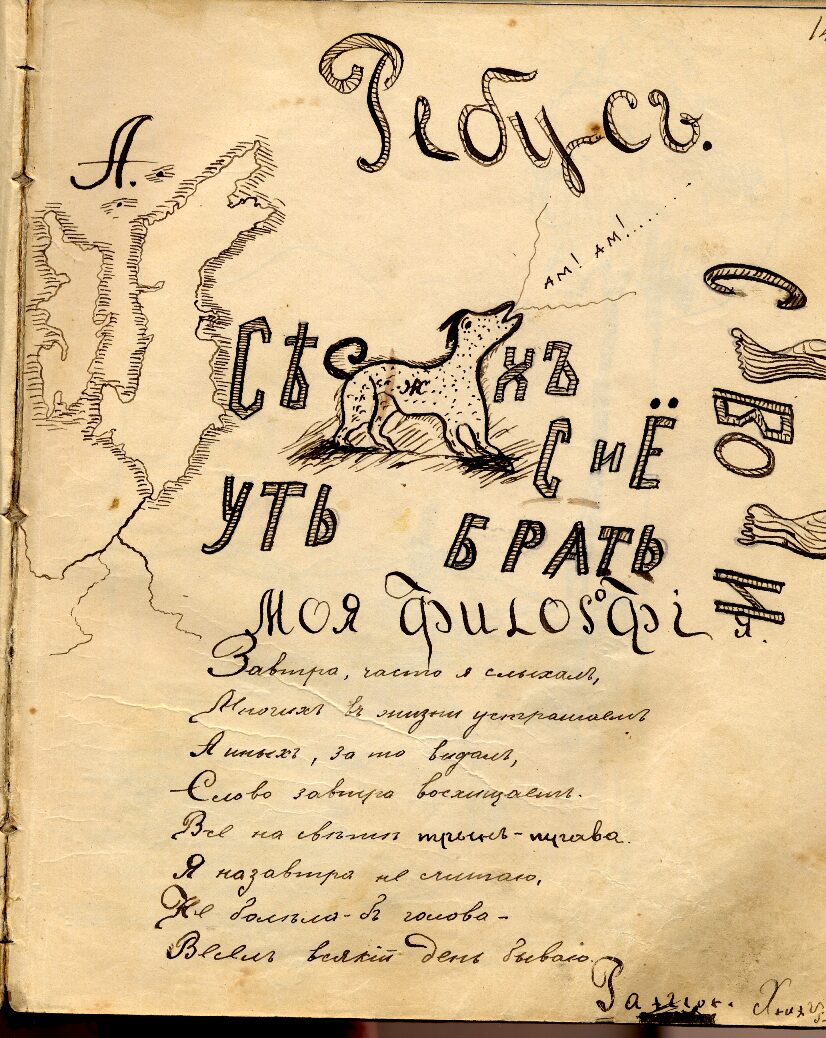 14
Ребусъ.
А.
АМ! АМ!......
СѢ Ж ХЪ
С И Ё
УТЬ
БРАТЬ
С
ВО
И
МОЯ ФИLОSОФІЯ.
Завтра, часто я слыхалъ,
Многихъ въ жизни устрашаетъ
А иныхъ, за то видалъ,
Слово завтра восхищаетъ.
Все на свѣтѣ трынъ-трава.
Я на завтра не считаю,
Не болѣла-бъ голова-
Веселъ всякій день бываю.